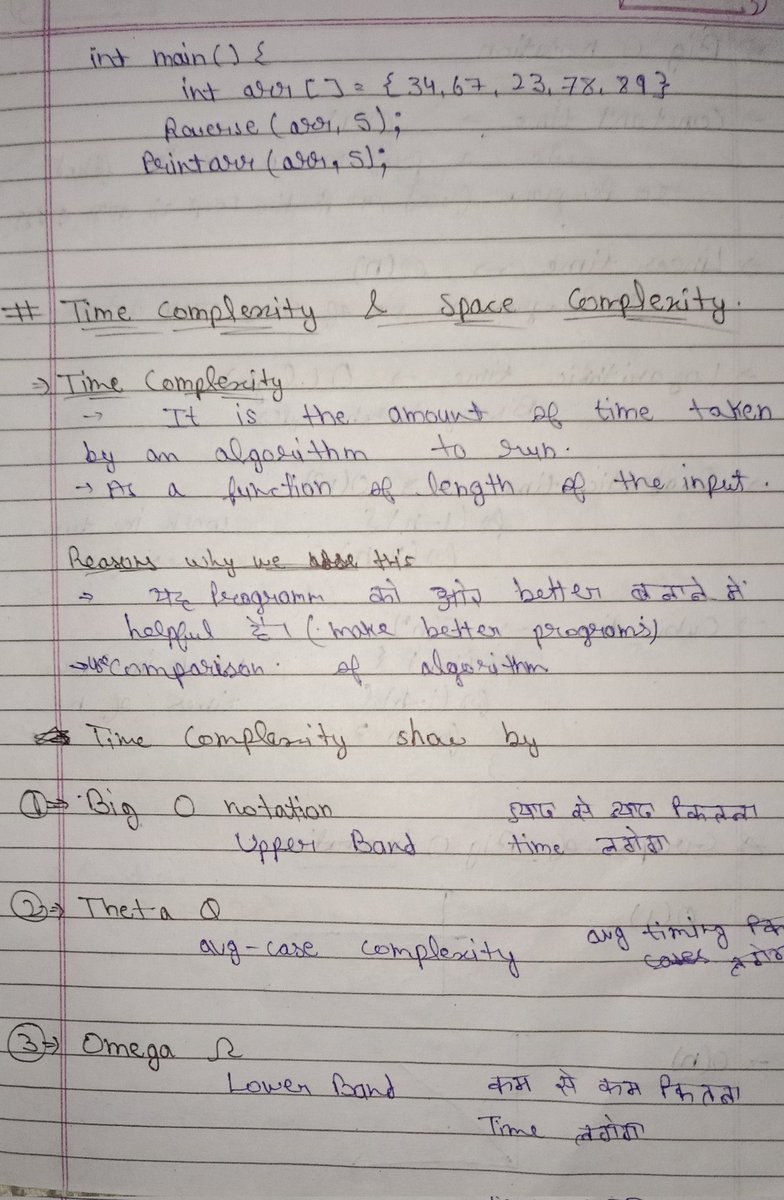 int main() {
int arr[] = {34, 67, 23, 78, 89}
Reverse (arr, 5);
Printarr (arr, 5);
# Time Complexity & Space Complexity.
⇒ Time Complexity
→ It is the amount of time taken
by an algorithm to run.
→ As a function of length of the input.
Reasons why we use this
⇒ यह Programm को और better बनाने में
helpful है। (make better programs)
→ use comparison of algorithm
Time Complexity show by
①⇒ Big O notation ज्याद से ज्याद कितना
Upper Band time लगेगा
②⇒ Theta Θ
avg-case complexity avg timing
cases
③⇒ Omega Ω
Lower Band कम से कम कितना
Time लगेगा